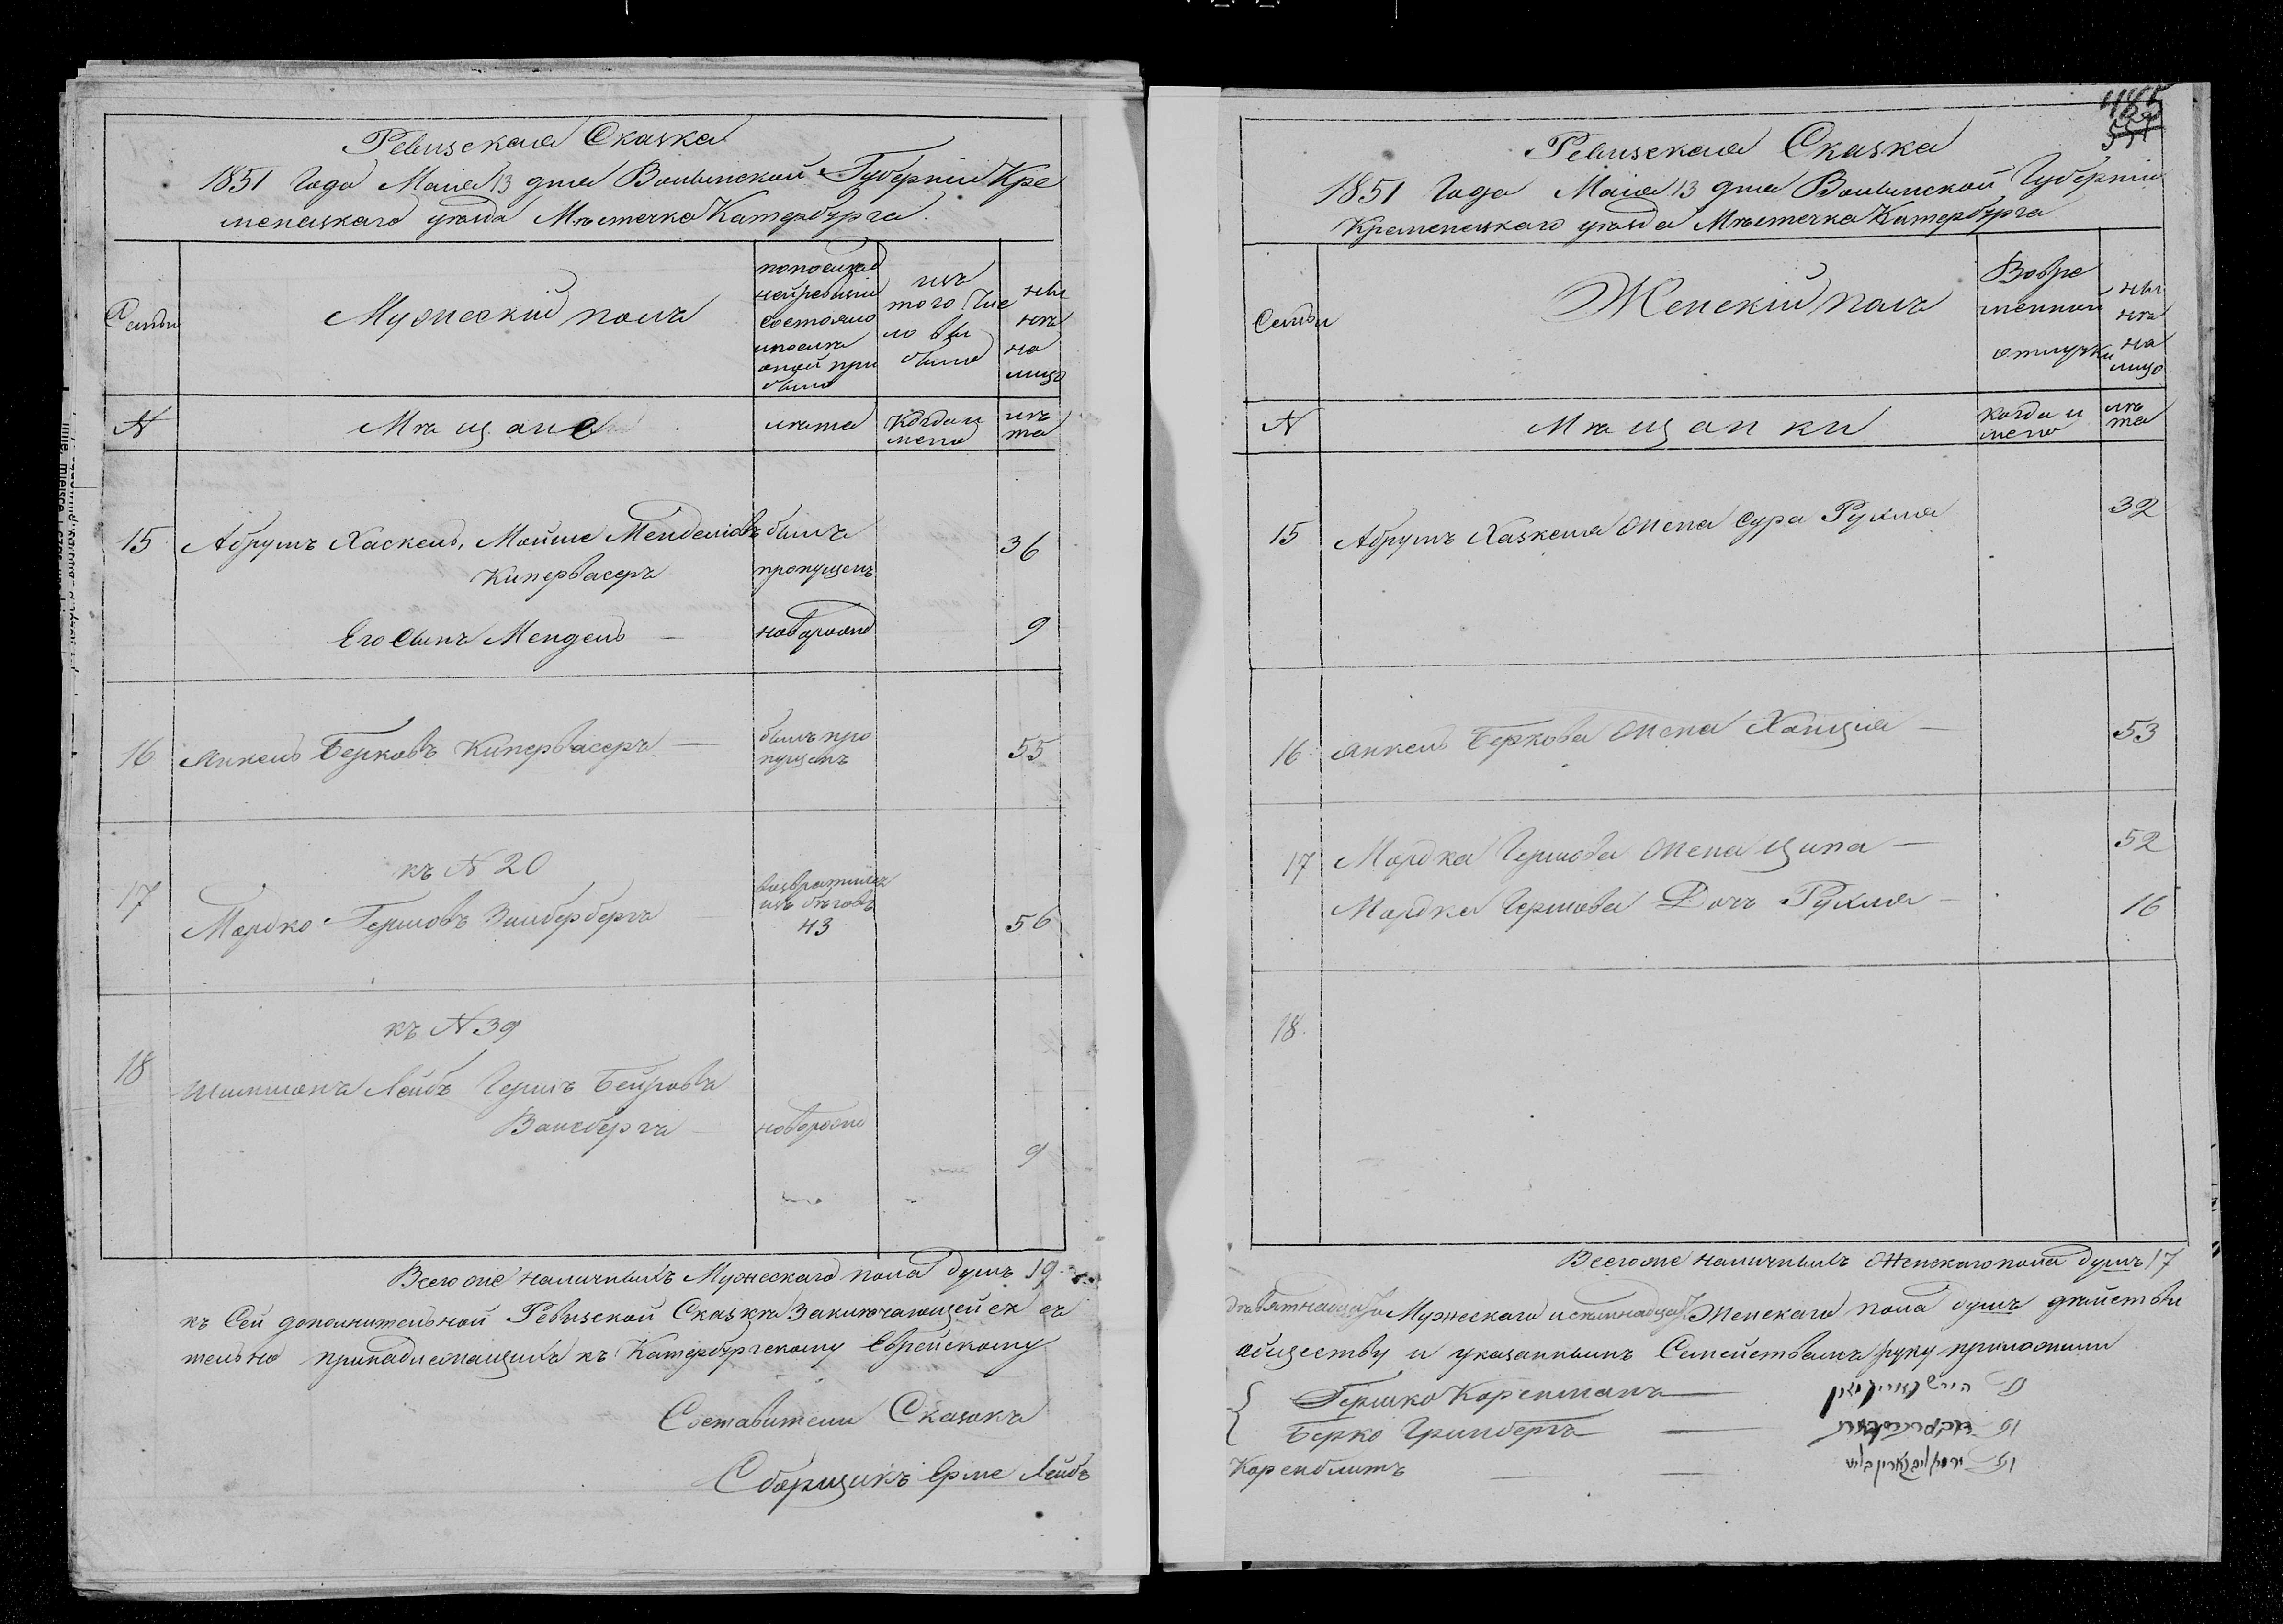 Ревизская Сказка
1851 Года Маія 13 дня Волынской Губерніи Кре
менецкаго уѣзда Мѣстечка Катербурга.
Семьи
Мужескій полъ
по послѣд
ней ревизіи
состояло
и послѣ
оной при
было
изъ
того чис
ло вы
было
ны
нѣ
на
лицо
N
Мѣщане
лѣта
Когда и
лѣ
та
15
Абрумъ Хаскель, Мошие Менделіовъ
Кипервасеръ
былъ
пропущенъ
36
Его Сынъ Мендель —
новорожд
9
16
Янкель Берковъ Кипервасеръ —
былъ про
пущенъ
55
17
къ N 20
Мордко Гершовъ Зильберберга
возвратился
изъ бѣговъ
43
56
18
къ N 39
Шимшонъ Лейбъ Гершъ Бейровъ
новорожд
9
Всего же наличныхъ Мужескаго пола душъ 19
къ Сей дополнительной Ревизской Сказкѣ Заключающейся въ
тельно принадлежащихъ къ Катербургскому Еврейскому
Составители Сказокъ
Сборщикъ Лейбъ
445
551
Ревизская Сказка
1851 Года Маія 13 дня Волынской Губерніи
Кременецкаго уѣзда Мѣстечка Катербурга
Семьи
Женскій полъ
Вовре
менной
отлучки
ны
нѣ
на
лицо
N
Мѣщанки
когда и
лѣ
та
15
Абрумъ Хазкеля Жена Сура Рухля
32
16
Янкель Беркова Жена Ханция —
53
17
Мордка Гершова Жена Ципа —
52
Мордка Гершова Дочь Рухля —
16
18.
Всего же наличныхъ Женскаго пола душъ 17
девятнадцати Мужескаго и семнадцати Женскаго пола душъ дѣйстви
обществу и указаннымъ Семействамъ руку приложили
Гершко Коренманъ —
Берко Гринбергъ —
Коренблитъ —